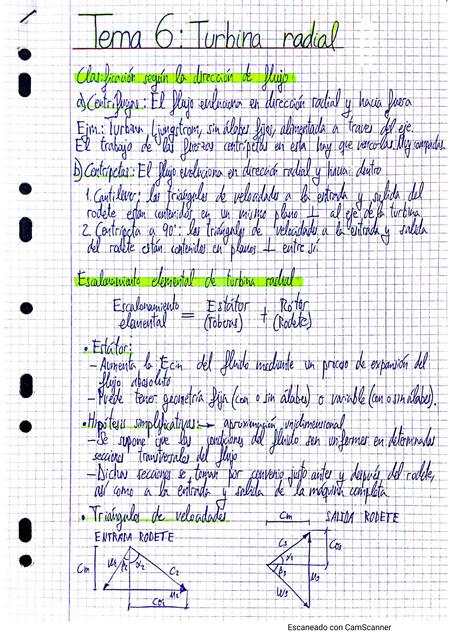 Tema 6: Turbina radial
Clasificación según la dirección de flujo
a) Centrífugas: El flujo evoluciona en dirección radial y hacia fuera
Ejm.: Turbina Ljungstrom, sin álabes fijos, alimentada a traves del eje.
El trabajo de las fuerzas centrípetas en esta hay que vencerlas. Muy compactas.
b) Centrípetas: El flujo evoluciona en dirección radial y hacia dentro
1. Cantilever: los triángulos de velocidades a la entrada y salida del
rodete estan contenidos en un mismo plano ⊥ al eje de la turbina
2. Centrípeta a 90º: los triángulos de velocidades a la entrada y salida
del rodete están contenidos en planos ⊥ entre sí
Escalonamiento elemental de turbina radial
Escalonamiento elemental = Estátor (Toberas) + Rotor (Rodete)
• Estátor:
- Aumenta la Ecin del fluido mediante un proceso de expansión del
flujo absoluto
- Puede tener geometría fija (con o sin álabes) o variable (con o sin álabes).
• Hipótesis simplificativas: → aproximación unidimensional
- Se supone que las condiciones del fluido son uniformes en determinadas
secciones transversales del flujo
- Dichas secciones se toman por convenio justo antes y después del rodete,
así como a la entrada y salida de la máquina completa.
• Triángulos de velocidades
Cm SALIDA RODETE
ENTRADA RODETE
Cm W2 β2 α2 C2 U2 Cθ2
C3 α3 β3 U3 W3 Cθ3
Escaneado con CamScanner